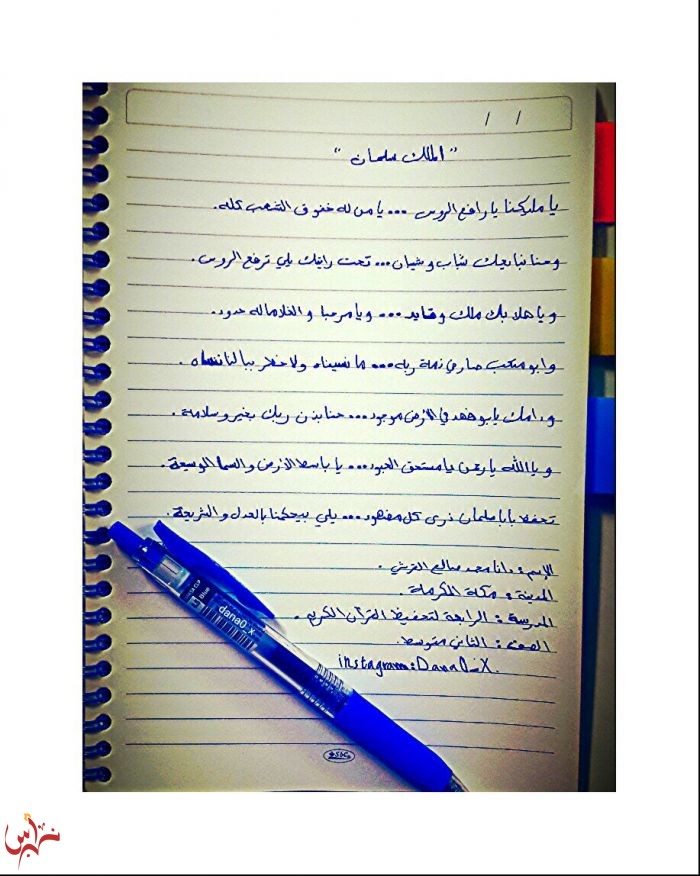 / /
" الملك سلمان "
يا مليكنا يا رافع الروس ... يا من له خفوق الشعب كله.
وحنا نبايعك شباب وشيبان ... تحت رايتك يلي ترفع الروس.
ويا هلا بك ملك وقايد ... ويا مرحبا والغلا ماله حدود.
وابو متعب صار في ذمة ربه ... ما نسيناه ولا خطر ببالنا ننساه.
ودامك يابو فهد في الأرض موجود ... حنا بإذن ربك بخير وسلامة.
ويا الله يا رحمن يا مستحق العبود ... يا باسط الأرض والسما الوسيعة.
تحفظ بابا سلمان ذرى كل مضهود ... يلي بيحكمنا بالعدل والشريعة.
الإسم : دانا محمد صالح القرشي .
المدينة : مكة المكرمة .
المدرسة : الرابعة لتحفيظ القرآن الكريم .
الصف : الثاني متوسط.
instagram:Dana0_X.
dana0_x
Blue
نبراس